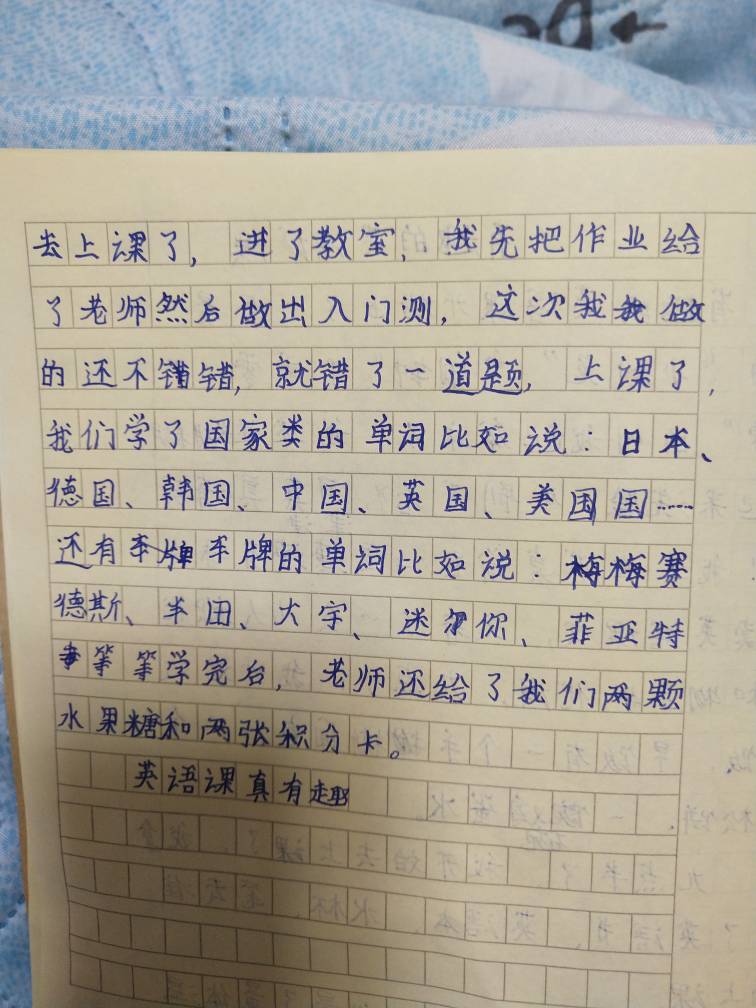 去上课了，进了教室，我先把作业给
了老师然后做出入门测，这次我我做
的还不错错，就错了一道题，上课了，
我们学了国家类的单词比如说：日本、
德国、韩国、中国、英国、美国国……
还有车牌车牌的单词比如说：梅梅赛
德斯、丰田、大宇、迷尔你、菲亚特
等等学完后，老师还给了我们两颗
水果糖和两张积分卡。
英语课真有趣